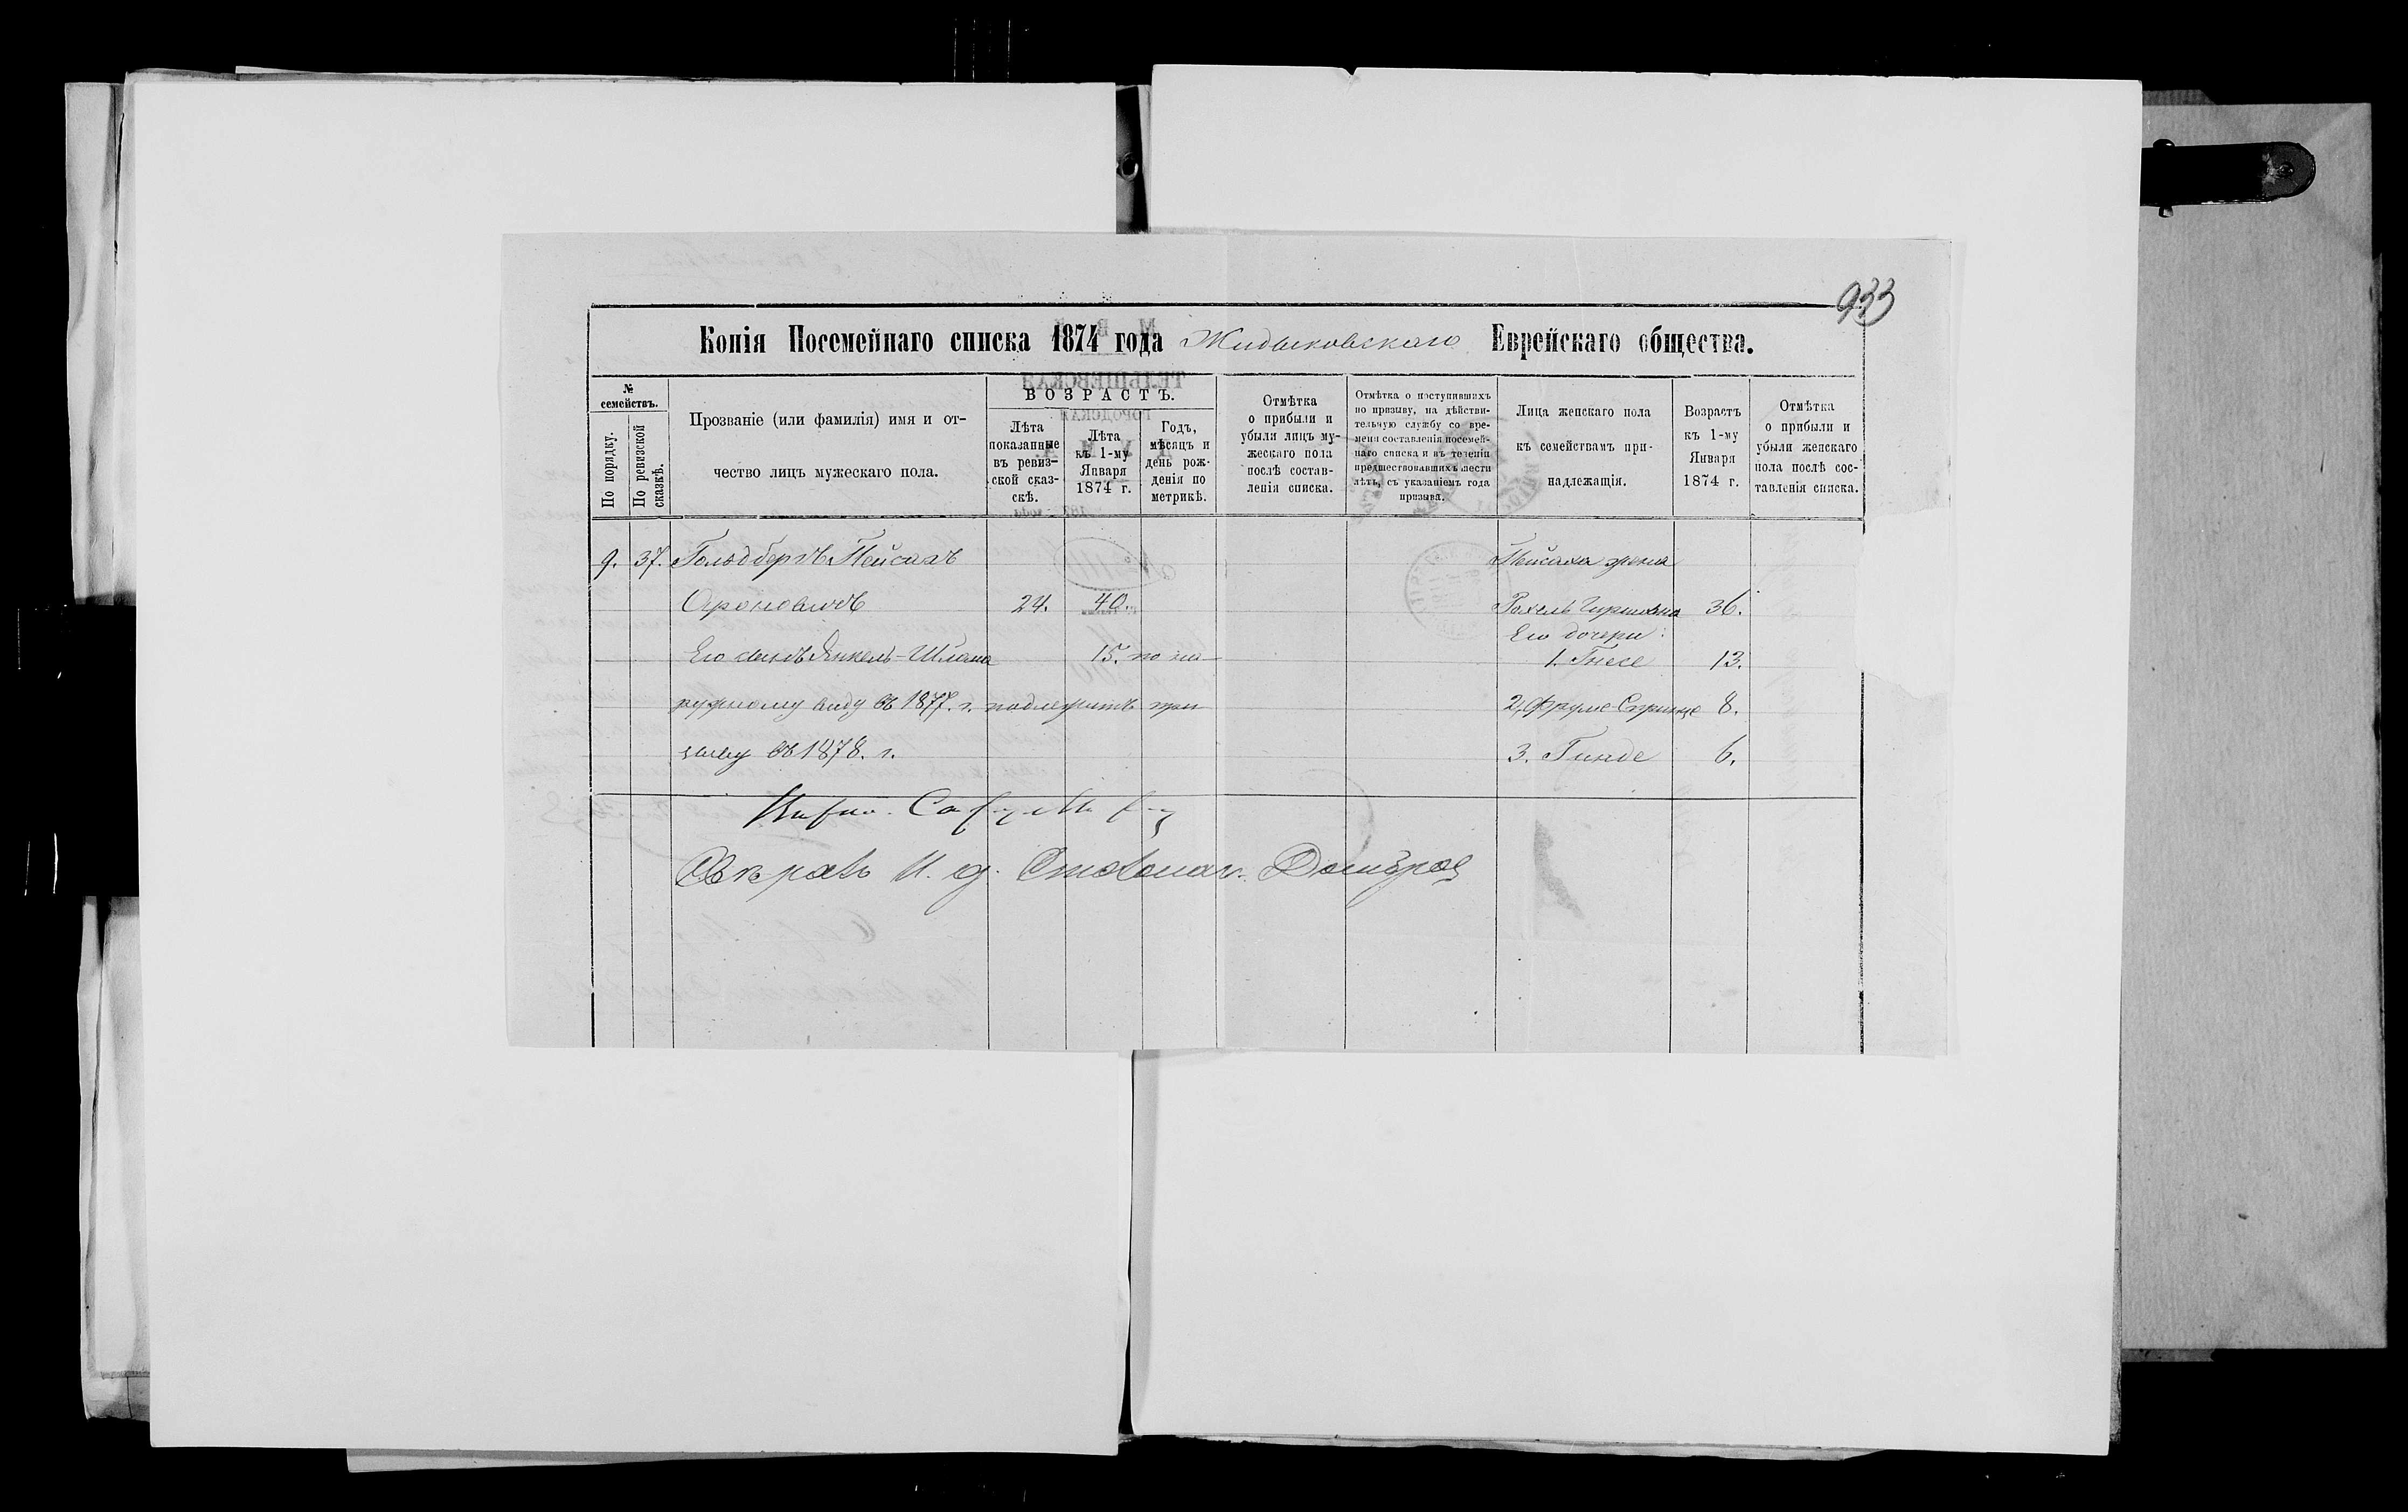 933
Копія Посемейнаго списка 1874 года Жидыковскаго Еврейскаго общества.
№ семействъ.
По порядку.
По ревизской сказкѣ.
Прозваніе (или фамилія) имя и от-
чество лицъ мужескаго пола.
ВОЗРАСТЪ.
Лѣта
показанные
въ ревиз-
ской сказ-
скѣ.
Лѣта
къ 1-му
Января
1874 г.
Годъ,
мѣсяцъ и
день рож-
денія по
метрикѣ.
Отмѣтка
о прибыли и
убыли лицъ му-
жескаго пола
послѣ состав-
ленія списка.
Отмѣтка о поступившихъ
по призыву, на дѣйстви-
тельную службу со вре-
мени составленія посемей-
наго списка и въ теченіи
предшествовавшихъ шести
лѣтъ, съ указаніемъ года
призыва.
Лица женскаго пола
къ семействамъ при-
надлежащія.
Возрастъ
къ 1-му
Января
1874 г.
Отмѣтка
о прибыли и
убыли женскаго
пола послѣ сос-
тавленія списка.
9. 37. Гольдбергъ Пейсахъ Пейсаха жена
Ороновичъ 24. 40. Рохель Гиршовна 36.
Его дочери:
Его сынъ Янкель-Шлома 15. по на- 1. Гнесе 13.
ружному виду въ 1877. г. подлежитъ при 2, Фруме-Спринце 8.
зыву въ 1878. г. 3. Гинде 6.